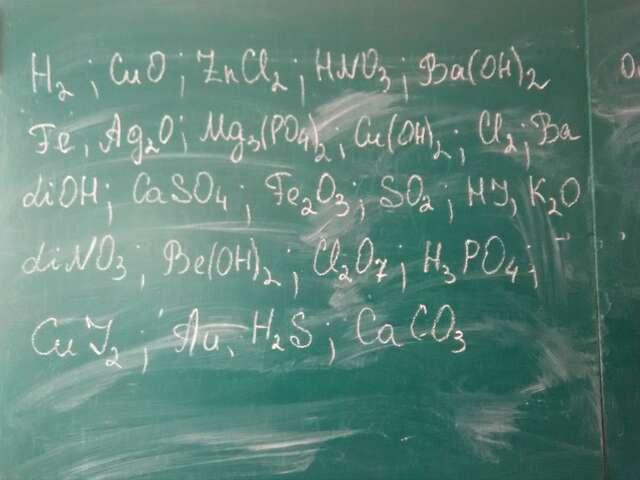 H₂ ; CuO ; ZnCl₂ ; HNO₃ ; Ba(OH)₂
Fe, Ag₂O ; Mg₃(PO₄)₂ ; Cu(OH)₂ ; Cl₂ ; Ba
LiOH ; CaSO₄ ; Fe₂O₃ ; SO₂ ; HJ, K₂O
LiNO₃ ; Be(OH)₂ ; Cl₂O₇ ; H₃PO₄ ;
CuJ₂ ; Au, H₂S ; CaCO₃